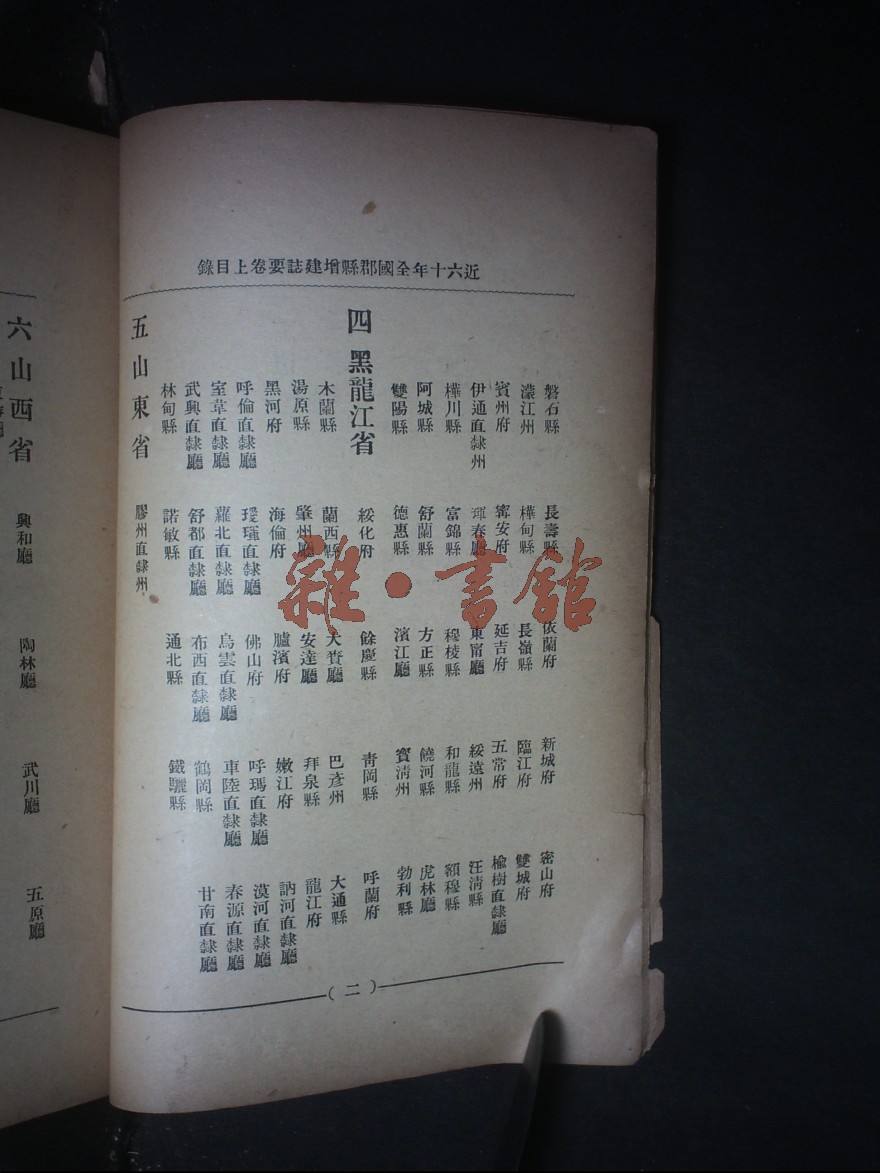 近六十年全國郡縣增建誌要卷上目錄
磐石縣 長壽縣 依蘭府 新城府 密山府
濛江州 樺甸縣 長嶺縣 臨江府 雙城府
賓州府 寗安府 延吉府 五常府 榆樹直隸廳
伊通直隸州 琿春廳 東甯廳 綏遠州 汪清縣
樺川縣 富錦縣 穆棱縣 和龍縣 額穆縣
阿城縣 舒蘭縣 方正縣 饒河縣 虎林廳
雙陽縣 德惠縣 濱江廳 寶清州 勃利縣
四 黑龍江省
綏化府 餘慶縣 青岡縣 呼蘭府
木蘭縣 蘭西縣 大賚廳 巴彥州 大通縣
湯原縣 肇州廳 安達廳 拜泉縣 龍江府
黑河府 海倫府 臚濱府 嫩江府 訥河直隸廳
呼倫直隸廳 璦琿直隸廳 佛山府 呼瑪直隸廳 漠河直隸廳
室韋直隸廳 蘿北直隸廳 烏雲直隸廳 車陸直隸廳 春源直隸廳
武興直隸廳 舒都直隸廳 布西直隸廳 鶴岡縣 甘南直隸廳
林甸縣 諾敏縣 通北縣 鐵驪縣
五 山東省
膠州直隸州
(二)
六 山西省
興和廳 陶林廳 武川廳 五原廳
雜·書館